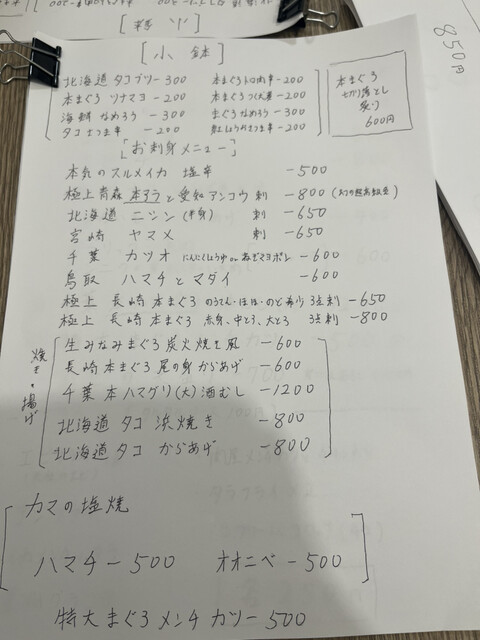 [小鉢]
北海道 タコブツ-300 本まぐろトロ肉辛-200
本まぐろ ツナマヨ-200 本まぐろつくだ煮-200
海鮮 なめろう-300 まぐろなめろう-300
タコ さつま辛-200
本まぐろ
切り落とし
炙り
600円
850円
[お刺身メニュー]
本気のスルメイカ 塩辛-500
極上青森 本アラと愛知アンコウ 刺-800
北海道 ニシン(半身) 刺-650
宮崎 ヤマメ 刺-650
千葉 カツオ にんにくしょうゆorねぎマヨポン-600
鳥取 ハマチとマダイ-600
極上 長崎本まぐろ のうてん・ほほ・のど 3点刺-650
極上 長崎本まぐろ 赤身、中とろ、大とろ 3点刺-800
焼き・揚げ
生みなみまぐろ炭火焼き風-600
長崎本まぐろ尾の身からあげ-600
千葉本ハマグリ(大)酒むし-1200
北海道タコ 浜焼き-800
北海道タコ からあげ-800
カマの塩焼
ハマチ-500 オオニベ-500
特大まぐろメンチカツ-500